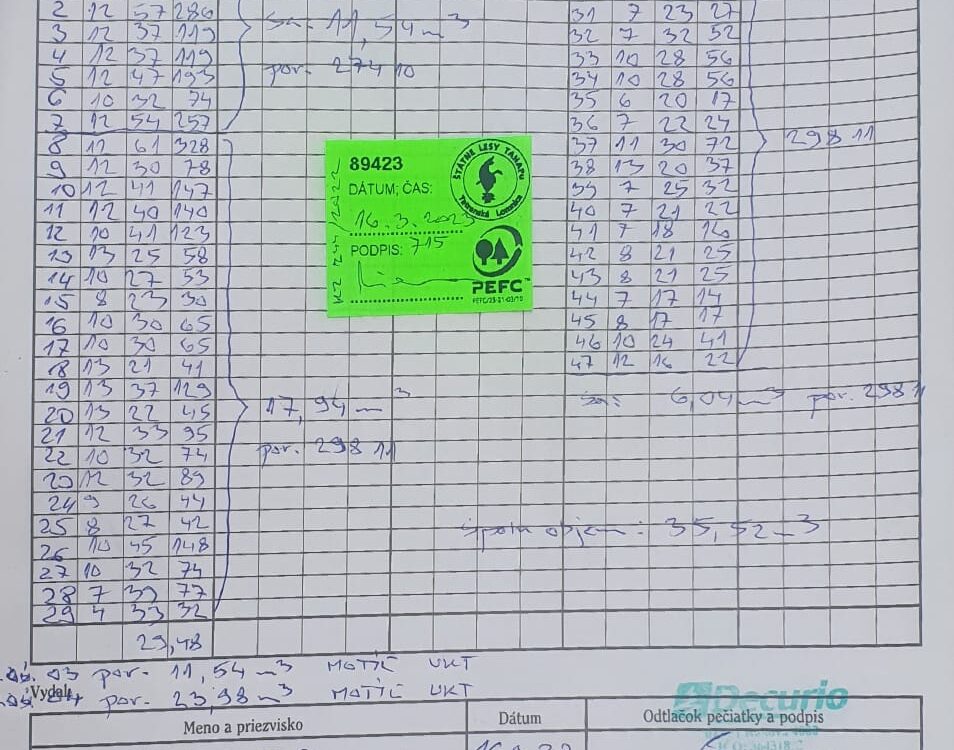 2 12 57 286
3 12 37 119
4 12 37 119
5 12 47 193
6 10 32 74
7 12 54 257
11,54 m3
por. 274 10
8 12 61 328
9 12 30 78
10 12 41 147
11 12 40 140
12 10 41 123
13 13 25 58
14 10 27 53
15 8 23 30
16 10 30 65
17 10 30 65
18 13 21 41
19 13 37 129
20 13 22 45
21 12 33 95
22 10 32 74
23 12 32 89
24 9 26 44
25 8 27 42
26 10 45 148
27 10 32 74
28 7 39 77
29 4 33 32
17,94 m3
por. 298 11
29,48
89423
DÁTUM; ČAS:
16.3.2023
PODPIS: 715
ŠTÁTNE LESY TANAPu
Tatranská Lomnica
PEFC™
31 7 23 27
32 7 32 52
33 10 28 56
34 10 28 56
35 6 20 17
36 7 22 24
37 11 30 72
38 13 20 37
39 7 25 32
40 7 21 22
41 7 18 16
42 8 21 25
43 8 21 25
44 7 17 14
45 8 17 17
46 10 24 41
47 12 16 22
298 11
6,04 m3 por. 298 11
objem: 35,52 m3
03 por. 11,54 m3 MOTÍČ UKT
04 por. 23,98 m3 MOTÍČ UKT
Vydal:
Decurio
Meno a priezvisko
Dátum
Odtlačok pečiatky a podpis